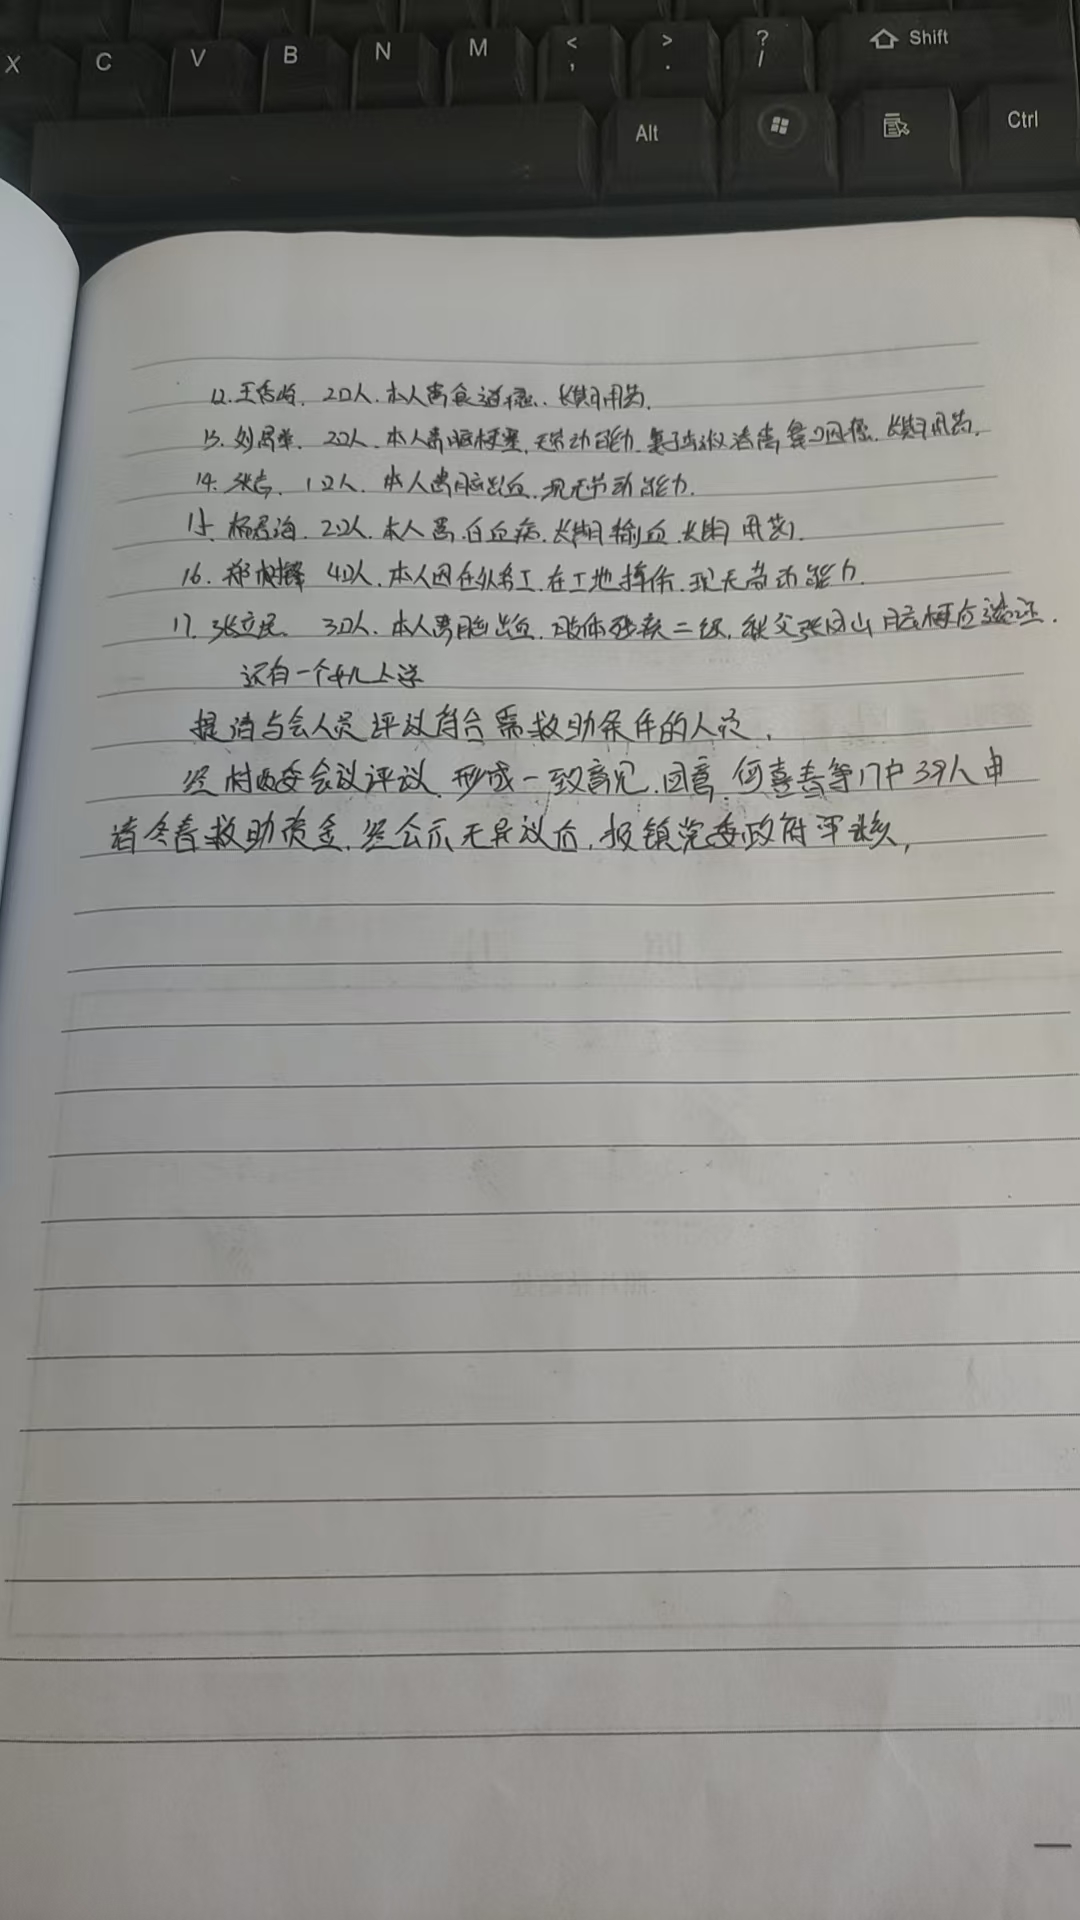 X C V B N M < , > . ? / Shift
Alt Ctrl
12.王秀岭. 2口人.本人患食道癌.长期用药.
13.刘居华. 2口人.本人患脑梗塞,无劳动能力.妻子患 癌.长期用药.
14.张吉. 1口人.本人患脑出血,现无劳动能力.
15.杨居海.2口人.本人患白血病.长期输血.长期用药.
16.郑树锋 4口人.本人因在外务工,在工地摔伤.现无劳动能力.
17.张立民. 3口人.本人患脑出血,肢体残疾二级,父张风山脑梗后遗症.
还有一个女儿上学
提请与会人员评议符合需救助条件的人员,
经村两委会议评议.形成一致意见.同意何喜春等17户39人申
请冬春救助资金.经公示无异议后,报镇党委政府评核,